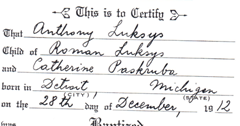 This is to Certify
That Anthony Luksys
Child of Roman Luksys
and Catherine Paskruba
born in Detroit, Michigan
(CITY) (STATE)
on the 28th day of December, 1912
Baptized